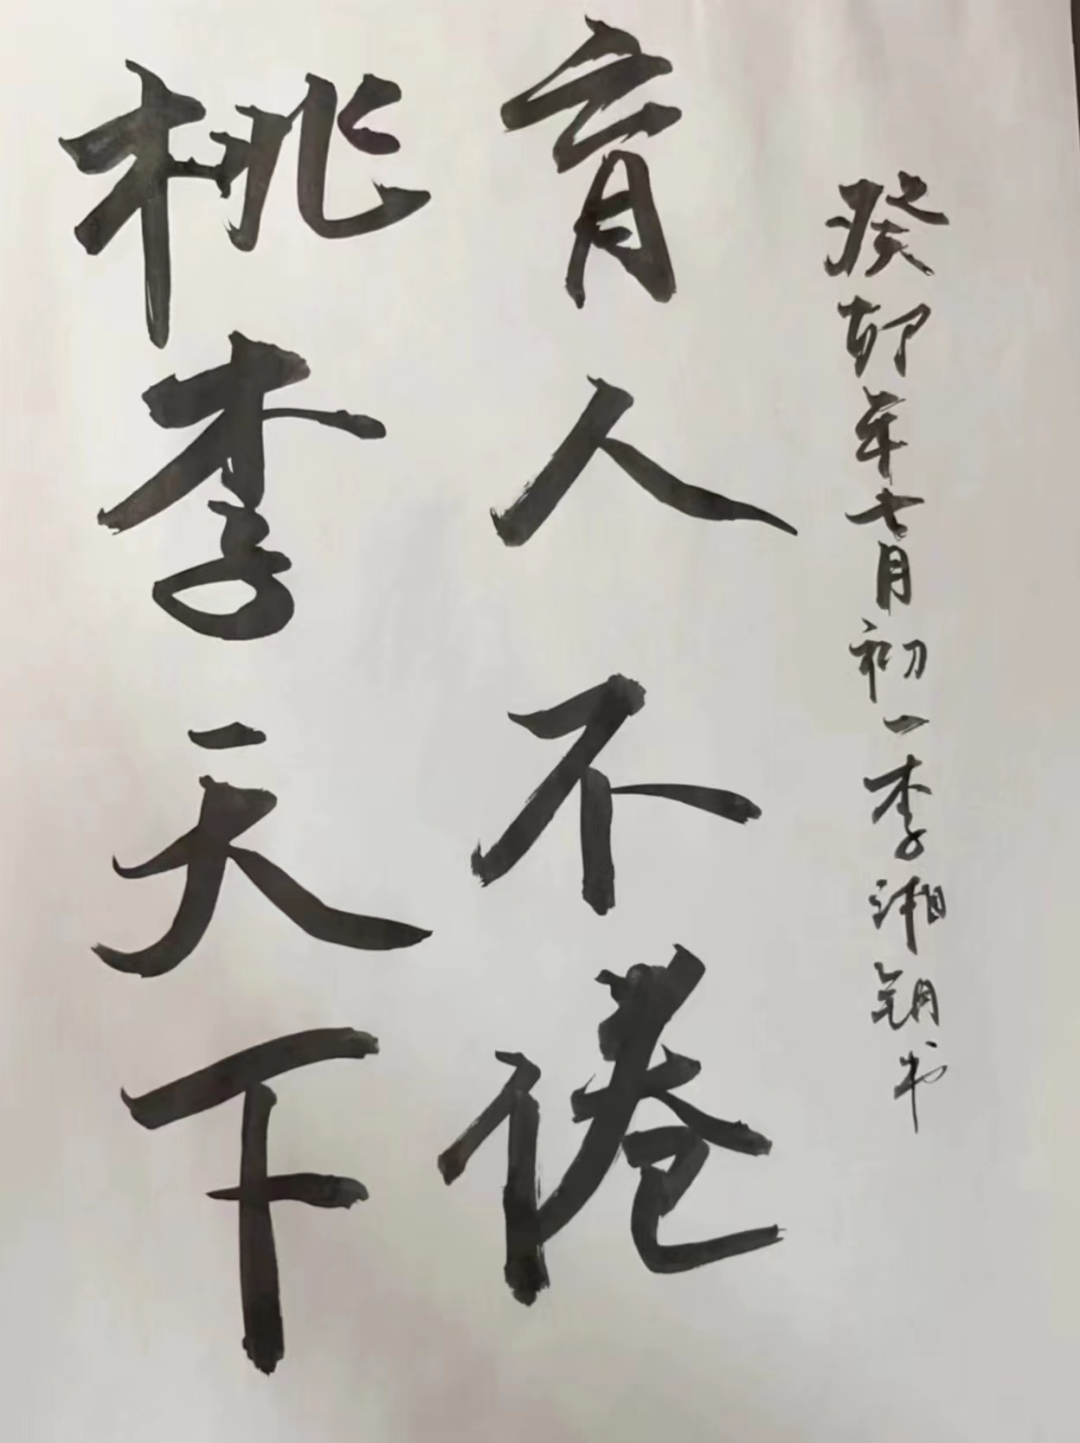 癸卯年七月初一李湘钥书
育人不倦
桃李天下